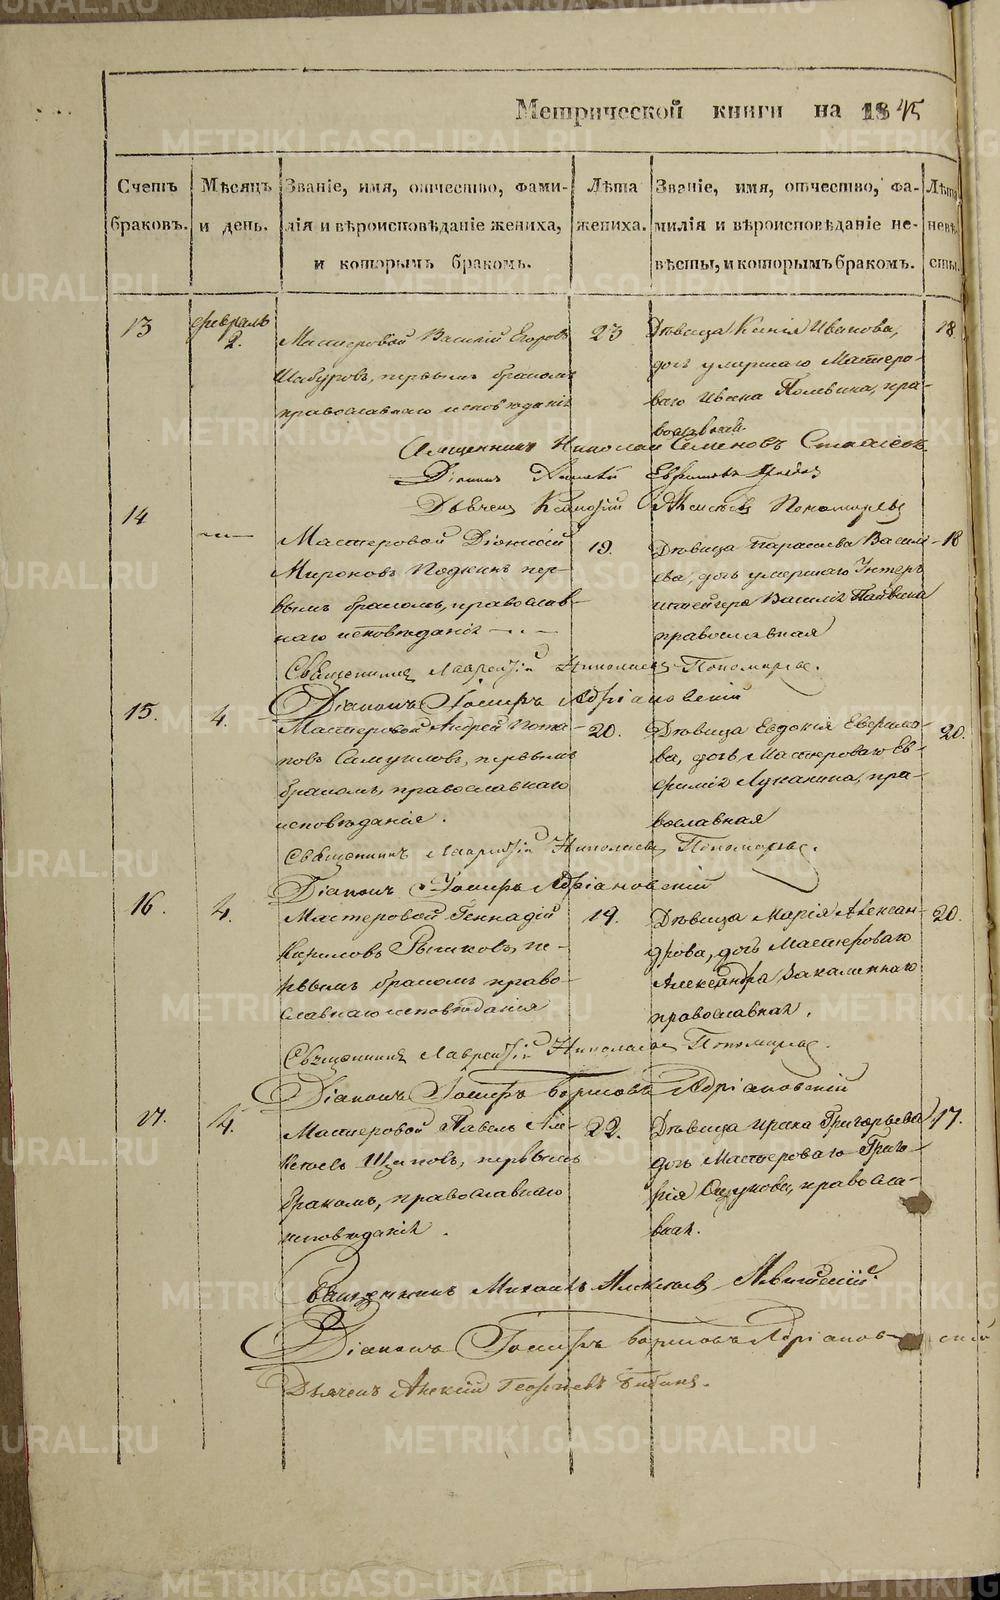 Метрической книги на 1845
Счетъ браковъ.
Мѣсяцъ и день.
Званіе, имя, отчество, фами-
лія и вѣроисповѣданіе жениха,
и которымъ бракомъ.
Лѣта жениха.
Званіе, имя, отчество, фа-
милія и вѣроисповѣданіе не-
вѣсты, и которымъ бракомъ.
Лѣта невѣ сты.
13
февраль
2.
Мастеровой Василій Егоровъ
Шабуровъ, первымъ бракомъ
православнаго исповѣданія
23
Дѣвица Ксенія Иванова,
дочь умершаго Мастеро-
ваго Ивана Полевина, пра-
вославной.
18
Священникъ Николай Семеновъ
Діаконъ
Дьячекъ Пономаревъ
14
Мастеровой Діонисій
Мироновъ Подкинъ пер-
вымъ бракомъ, православ-
наго исповѣданія
19.
Дѣвица Параскева Василь-
ева, дочь умершаго Унтеръ
штейгера Василія
православная
18
Священникъ Лаврентій Николаевъ Пономаревъ.
Діаконъ Іосифъ Адріановскій
15.
4.
Мастеровой Андрей Пота-
повъ Самуиловъ, первымъ
бракомъ, православнаго
исповѣданія.
20.
Дѣвица Евдокія Евфимо-
ва, дочь Мастероваго Ев-
фимія Луканина, пра-
вославная
20.
Священникъ Лаврентій Николаевъ Пономаревъ.
Діаконъ Іосифъ Адріановскій
16.
4.
Мастеровой Геннадій
Кириловъ Рычковъ, пе-
рвымъ бракомъ право-
славнаго исповѣданія
19.
Дѣвица Марія Алексан-
дрова, дочь Мастероваго
Александра Закаменнаго
православная.
20.
Священникъ Лаврентій Николаевъ Пономаревъ.
Діаконъ Іосифъ Борисовъ Адріановскій
17.
4.
Мастеровой Павелъ Але-
ксѣевъ Щаповъ, первымъ
бракомъ, православнаго
исповѣданія.
22.
Дѣвица Ирина Григорьева,
дочь Мастероваго Григо-
рія православ-
ная.
17.
Священникъ Михаилъ Алексѣевъ
Діаконъ Іосифъ Борисовъ Адріановскій
Дьячекъ Алексій Георгіевъ
METRIKI.GASO-URAL.RU